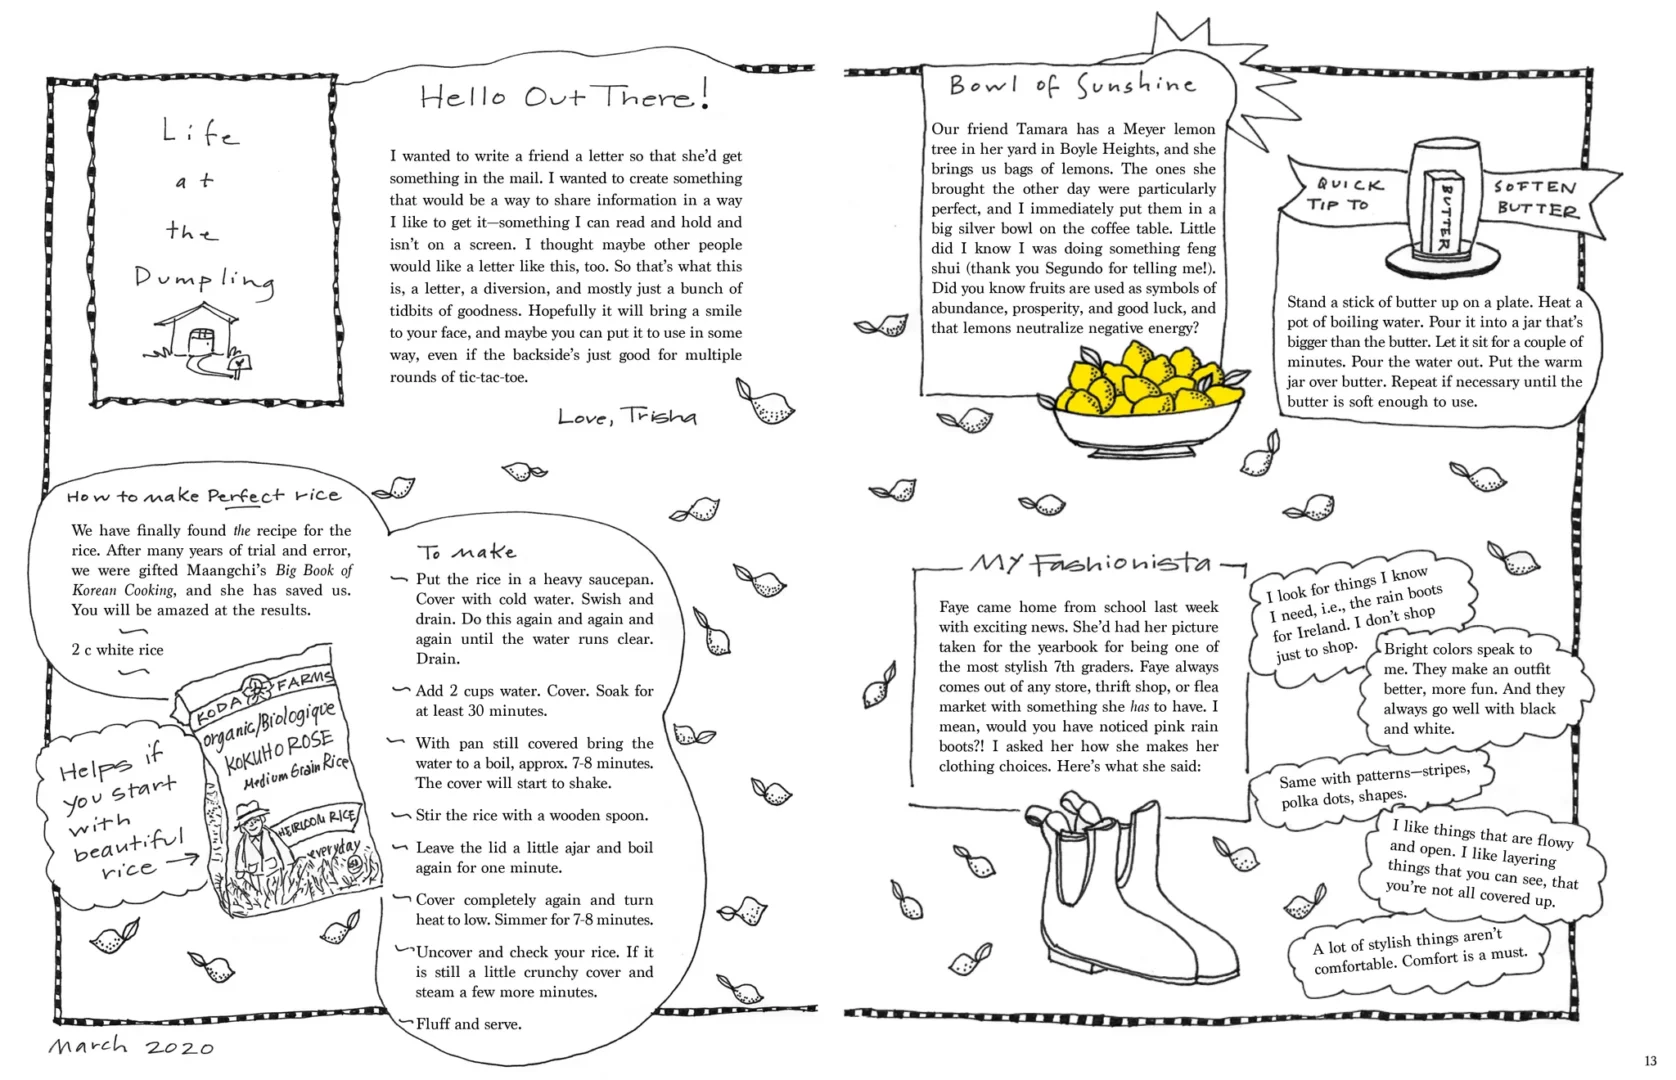 Life
at
the
Dumpling
Hello Out There!
I wanted to write a friend a letter so that she'd get
something in the mail. I wanted to create something
that would be a way to share information in a way
I like to get it—something I can read and hold and
isn't on a screen. I thought maybe other people
would like a letter like this, too. So that's what this
is, a letter, a diversion, and mostly just a bunch of
tidbits of goodness. Hopefully it will bring a smile
to your face, and maybe you can put it to use in some
way, even if the backside's just good for multiple
rounds of tic-tac-toe.
Love, Trisha
How to make Perfect rice
We have finally found the recipe for the
rice. After many years of trial and error,
we were gifted Maangchi's Big Book of
Korean Cooking, and she has saved us.
You will be amazed at the results.
2 c white rice
Helps if
you start
with
beautiful
rice
KODA FARMS
organic/Biologique
KOKUHO ROSE
Medium Grain Rice
HEIRLOOM RICE
everyday
To make
Put the rice in a heavy saucepan.
Cover with cold water. Swish and
drain. Do this again and again and
again until the water runs clear.
Drain.
Add 2 cups water. Cover. Soak for
at least 30 minutes.
With pan still covered bring the
water to a boil, approx. 7-8 minutes.
The cover will start to shake.
Stir the rice with a wooden spoon.
Leave the lid a little ajar and boil
again for one minute.
Cover completely again and turn
heat to low. Simmer for 7-8 minutes.
Uncover and check your rice. If it
is still a little crunchy cover and
steam a few more minutes.
Fluff and serve.
March 2020
Bowl of Sunshine
Our friend Tamara has a Meyer lemon
tree in her yard in Boyle Heights, and she
brings us bags of lemons. The ones she
brought the other day were particularly
perfect, and I immediately put them in a
big silver bowl on the coffee table. Little
did I know I was doing something feng
shui (thank you Segundo for telling me!).
Did you know fruits are used as symbols of
abundance, prosperity, and good luck, and
that lemons neutralize negative energy?
QUICK
TIP TO
BUTTER
SOFTEN
BUTTER
Stand a stick of butter up on a plate. Heat a
pot of boiling water. Pour it into a jar that's
bigger than the butter. Let it sit for a couple of
minutes. Pour the water out. Put the warm
jar over butter. Repeat if necessary until the
butter is soft enough to use.
My Fashionista
Faye came home from school last week
with exciting news. She'd had her picture
taken for the yearbook for being one of
the most stylish 7th graders. Faye always
comes out of any store, thrift shop, or flea
market with something she has to have. I
mean, would you have noticed pink rain
boots?! I asked her how she makes her
clothing choices. Here's what she said:
I look for things I know
I need, i.e., the rain boots
for Ireland. I don't shop
just to shop.
Bright colors speak to
me. They make an outfit
better, more fun. And they
always go well with black
and white.
Same with patterns—stripes,
polka dots, shapes.
I like things that are flowy
and open. I like layering
things that you can see, that
you're not all covered up.
A lot of stylish things aren't
comfortable. Comfort is a must.
13